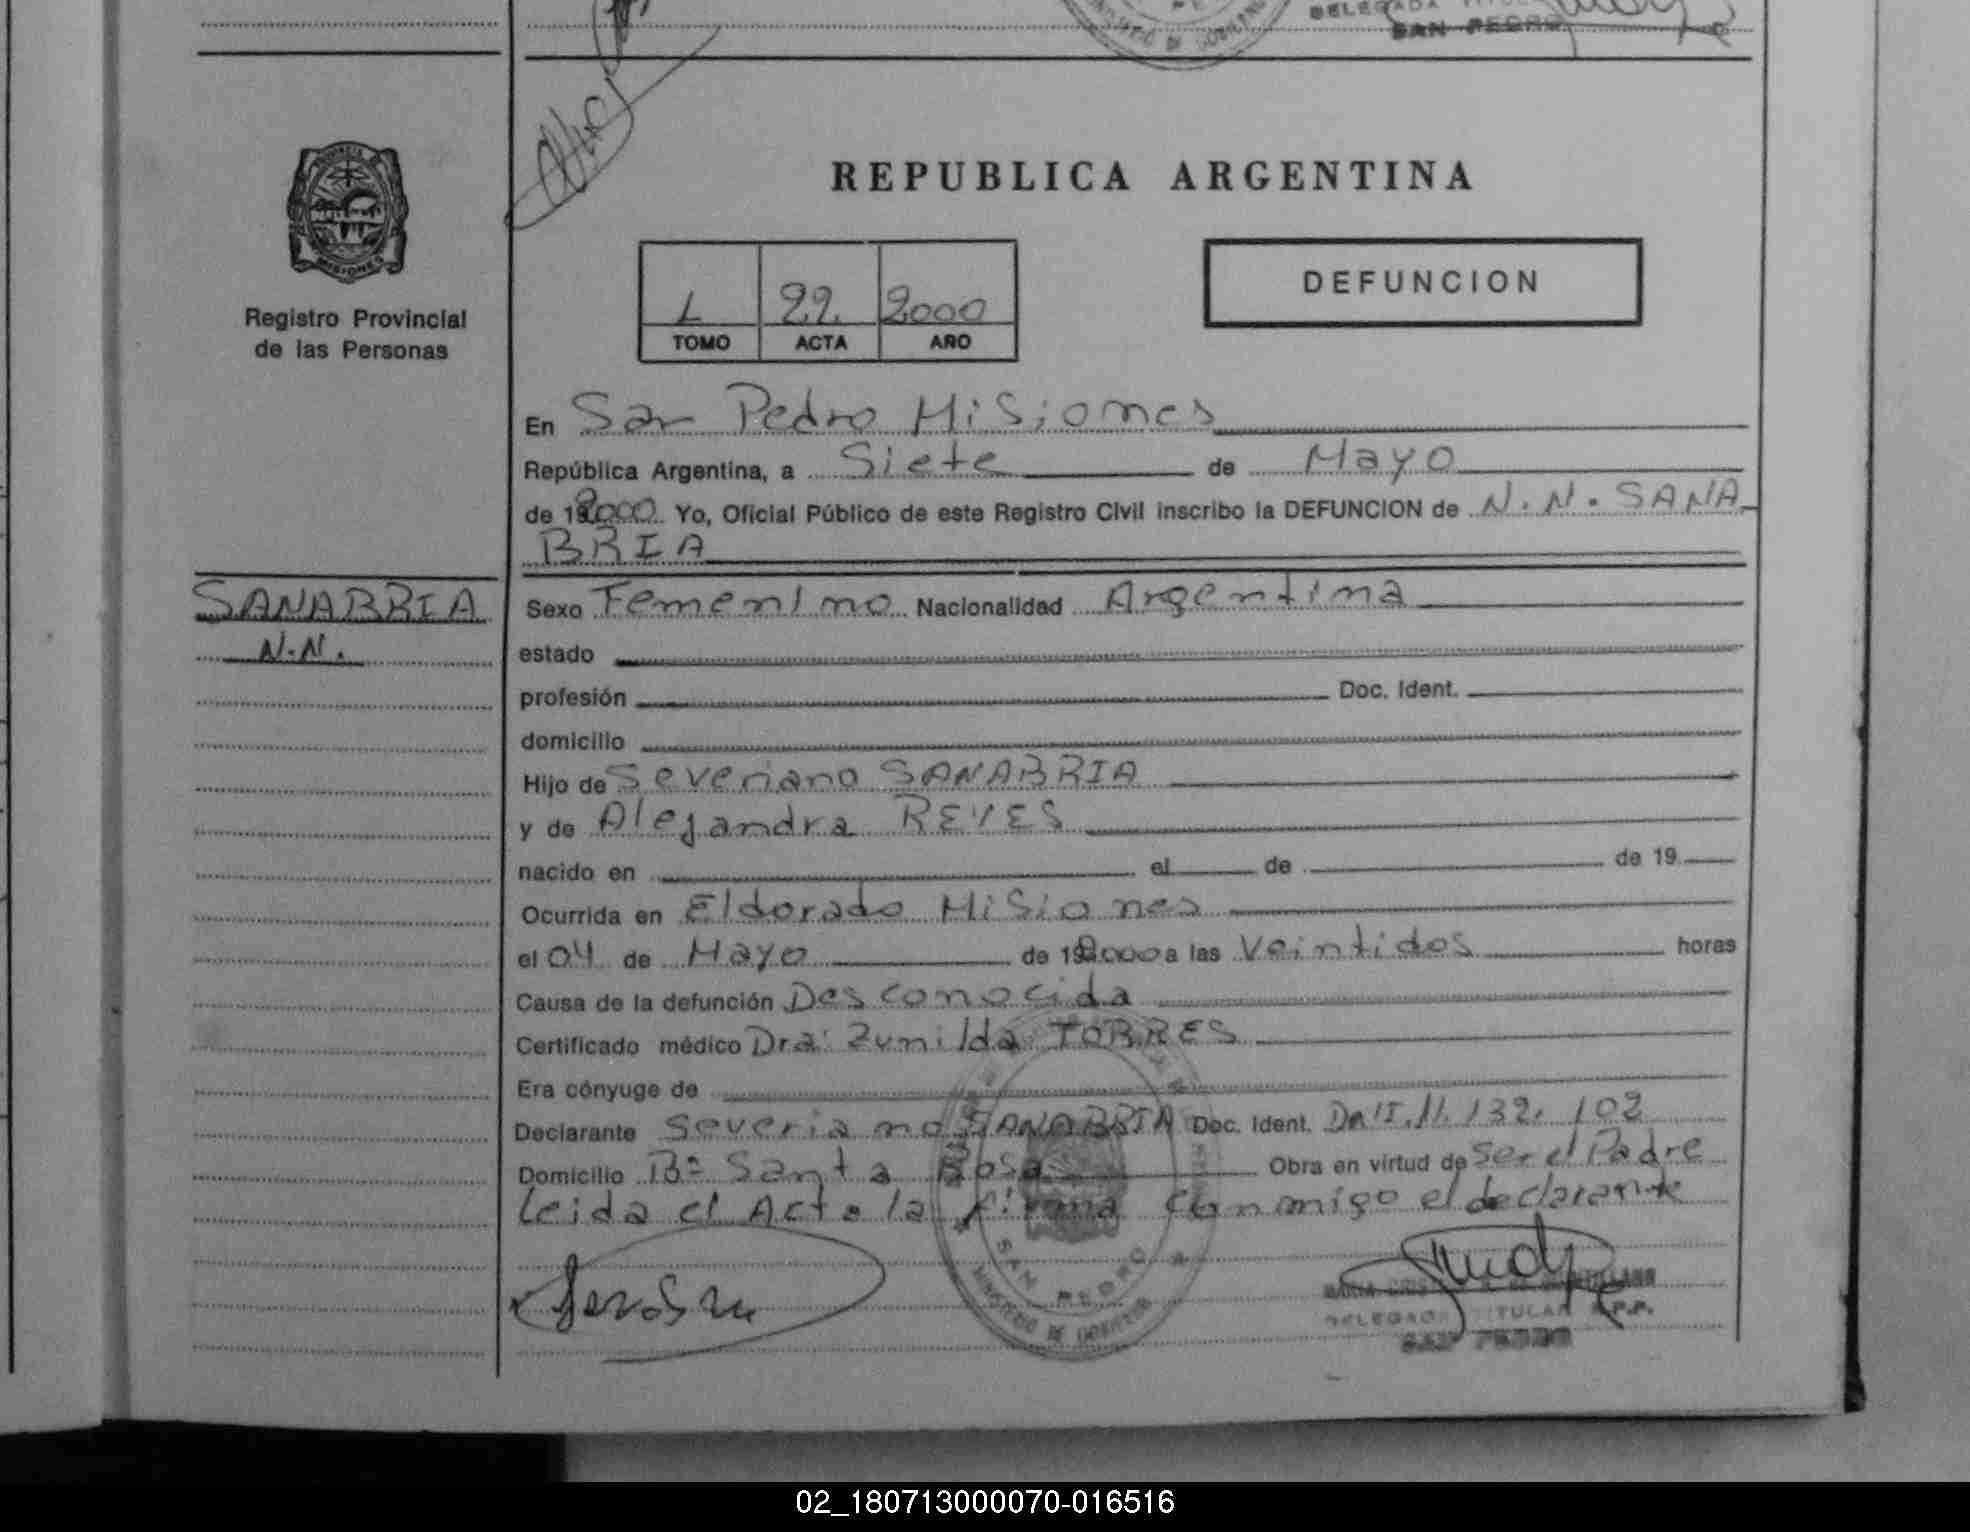 DELEGADA
SAN PEDRO
REPUBLICA ARGENTINA
DEFUNCION
Registro Provincial
de las Personas
MISIONES
L 22 2000
TOMO ACTA AÑO
En San Pedro Misiones
República Argentina, a Siete de Mayo
de 192000 Yo, Oficial Público de este Registro Civil inscribo la DEFUNCION de N.N. SANA
BRIA
SANABRIA
N.N.
Sexo Femenino Nacionalidad Argentina
estado
profesión Doc. Ident.
domicilio
Hijo de Severiano SANABRIA
y de Alejandra REYES
nacido en el de de 19
Ocurrida en Eldorado Misiones
el 04 de Mayo de 192000 a las Veintidos horas
Causa de la defunción Desconocida
Certificado médico Dra: Zunilda TORRES
Era cónyuge de
Declarante Severiano SANABRIA Doc. Ident. DNI. 11.132.102
Domicilio Bº Santa Rosa Obra en virtud de Ser el Padre
Leida el Acta la firma conmigo el declarante
SAN PEDRO
MINISTERIO DE GOBIERNO
DELEGADA TITULAR R.P.P.
SAN PEDRO
02_180713000070-016516